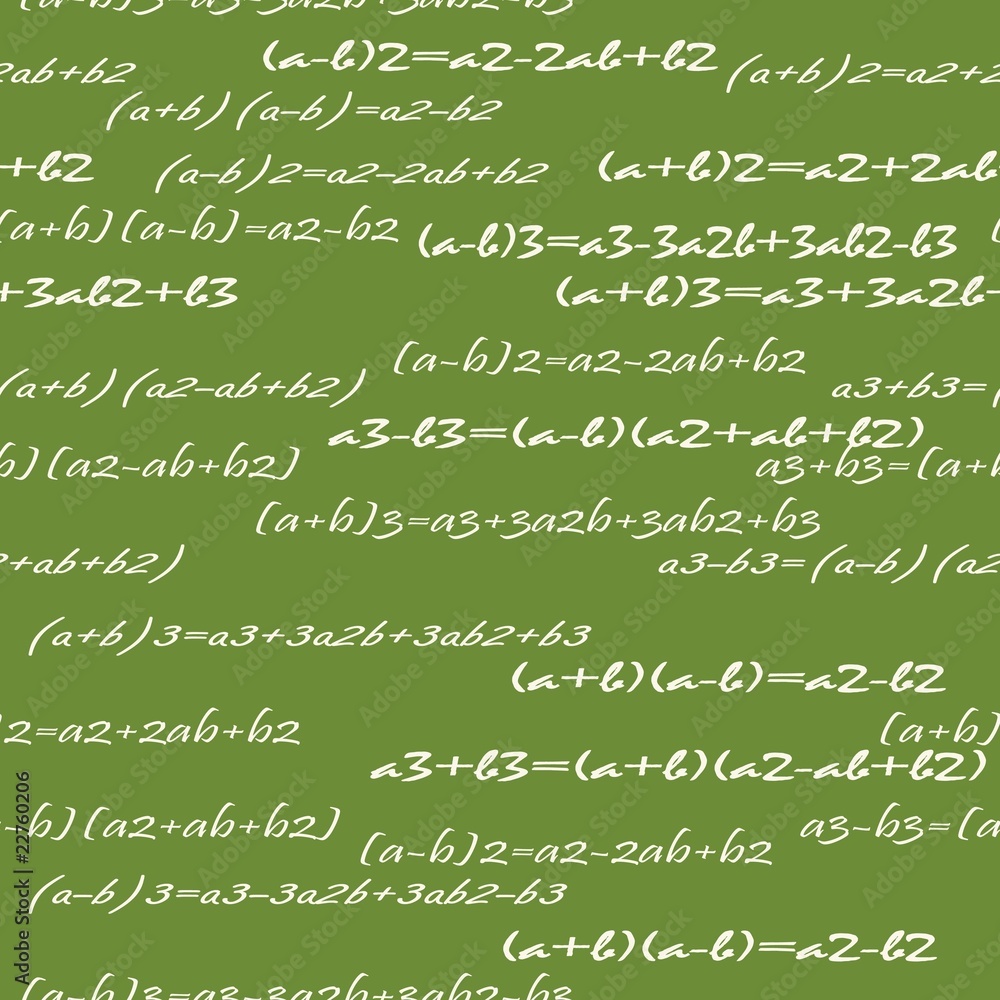 (a-b)3=a3-3a2b+3ab2-b3
(a-b)2=a2-2ab+b2
2ab+b2
(a+b)2=a2+2
(a+b)(a-b)=a2-b2
+b2
(a-b)2=a2-2ab+b2
(a+b)2=a2+2ab
[a+b][a-b]=a2-b2
(a-b)3=a3-3a2b+3ab2-b3
+3ab2+b3
(a+b)3=a3+3a2b+
[a-b]2=a2-2ab+b2
(a+b)(a2-ab+b2)
a3+b3=(
a3-b3=(a-b)(a2+ab+b2)
b][a2-ab+b2]
a3+b3=[a+b
[a+b]3=a3+3a2b+3ab2+b3
2+ab+b2)
a3-b3=(a-b)(a2
(a+b)3=a3+3a2b+3ab2+b3
(a+b)(a-b)=a2-b2
]2=a2+2ab+b2
[a+b]
a3+b3=(a+b)(a2-ab+b2)
-b][a2+ab+b2]
a3-b3=[a
[a-b]2=a2-2ab+b2
(a-b)3=a3-3a2b+3ab2-b3
(a+b)(a-b)=a2-b2
[a-b]3=a3-3a2b+3ab2-b3
Adobe Stock | #22760206